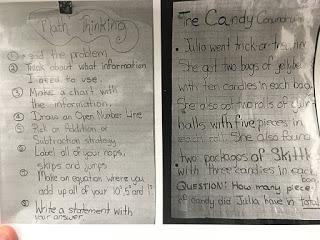 Math Thinking
① Read the problem
② Think about what information
I need to use.
③ Make a chart with
the information.
④ Draw an Open Number Line
⑤ Pick an Addition or
Subtraction strategy
⑥ Label all of your hops,
skips and jumps
⑦ Make an equation where you
add up all of your 10's and 1's
⑧ Write a statement with
your answer.
The Candy Conundrum
• Julia went trick-or-treating
She got two bags of
with ten candies in each bag
She also got two rolls of
balls with five pieces in
each roll. She also found
two packages of Skittles
with three candies in each
bag.
QUESTION: How many pieces
of candy did Julia have in total